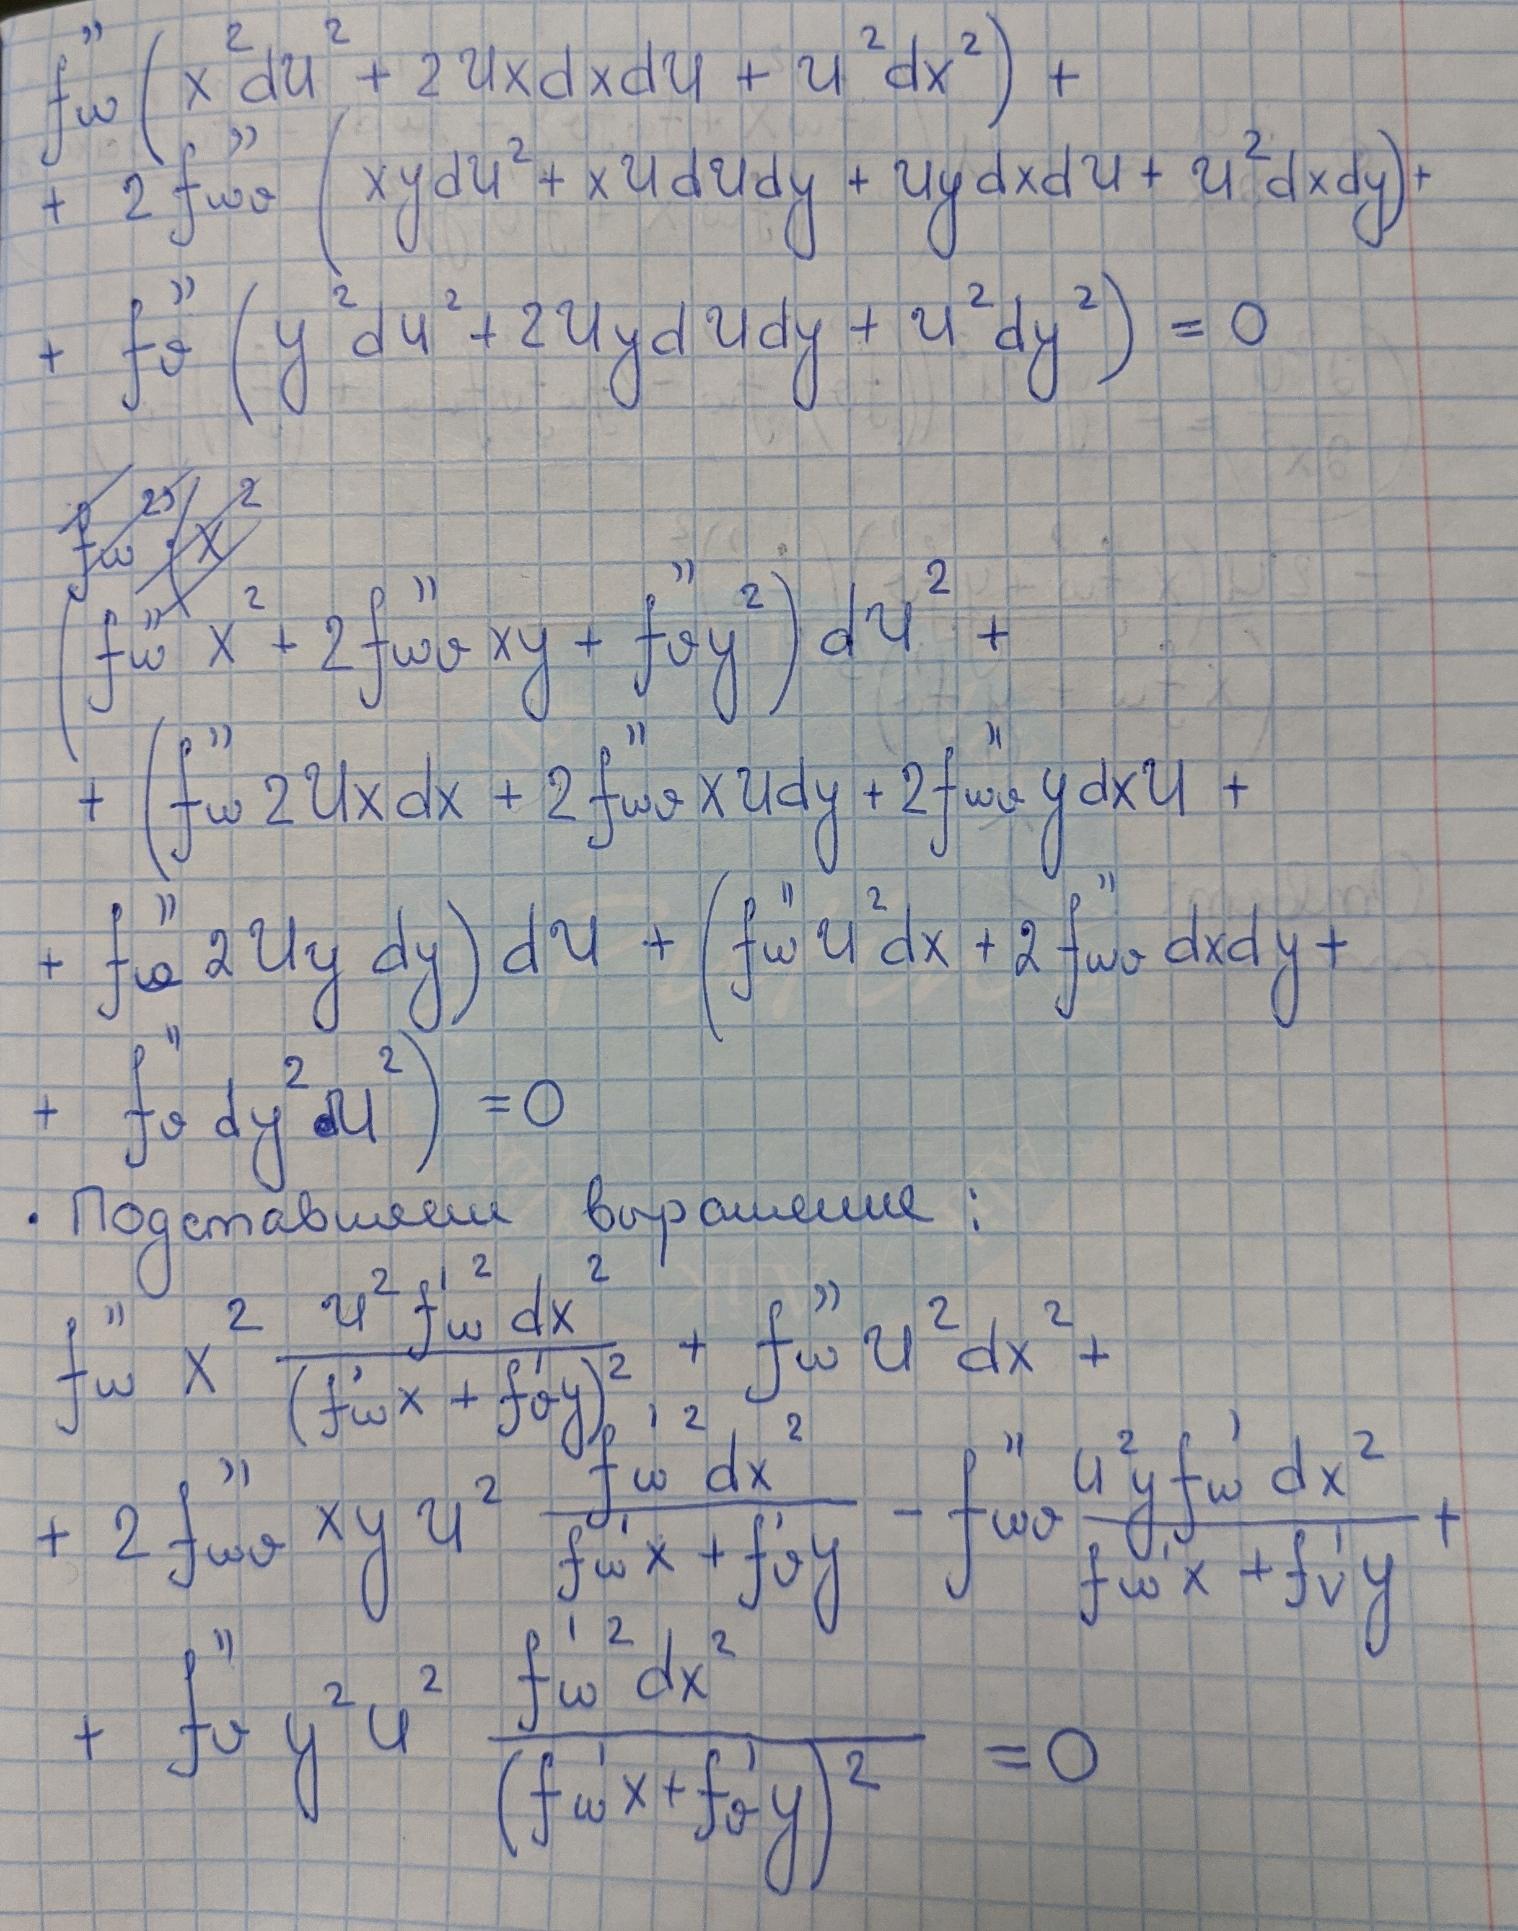 f''_ω (x²du² + 2uxdxdu + u²dx²) +
+ 2f''_ωv (xydu² + xududy + uydxdu + u²dxdy) +
+ f''_v (y²du² + 2uydudy + u²dy²) = 0
f''_ω (x²
(f''_ω x² + 2f''_ωv xy + f''_v y²) du² +
+ (f''_ω 2uxdx + 2f''_ωv xudy + 2f''_ωv ydxu +
+ f''_v 2uy dy) du + (f''_ω u²dx + 2f''_ωv dxdy +
+ f''_v dy² u²) = 0
· Подставляем выражение:
f''_ω x² (u² f'_ω² dx²)/(f'_ω x + f'_v y)² + f''_ω u²dx² +
+ 2f''_ωv xyu² (f'_ω² dx²)/(f'_ω x + f'_v y) - f''_ωv (u²y f'_ω dx²)/(f'_ω x + f'_v y) +
+ f''_v y²u² (f'_ω² dx²)/(f'_ω x + f'_v y)² = 0